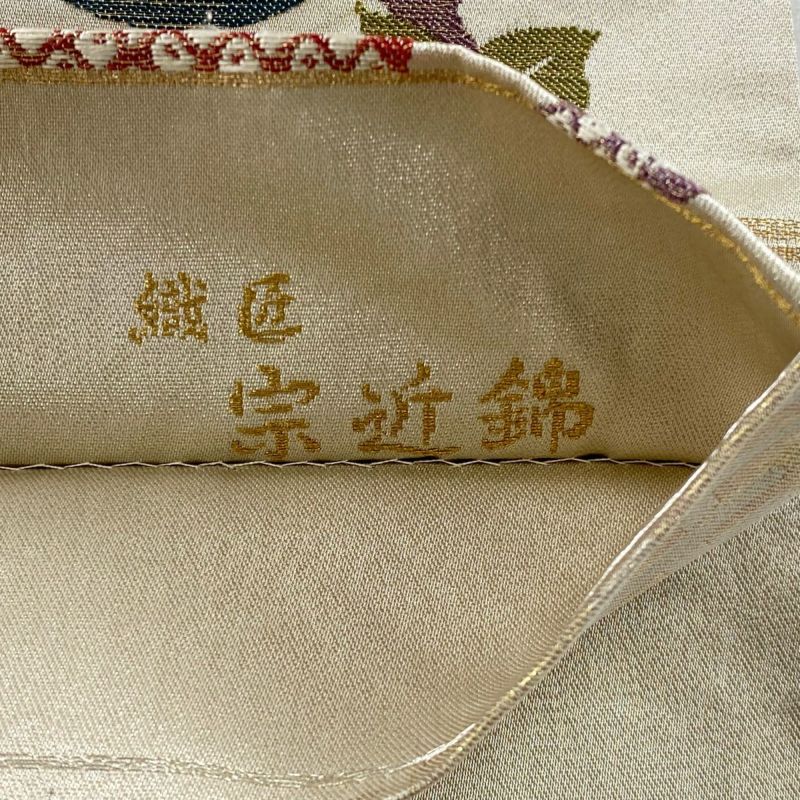 織匠
宗近錦